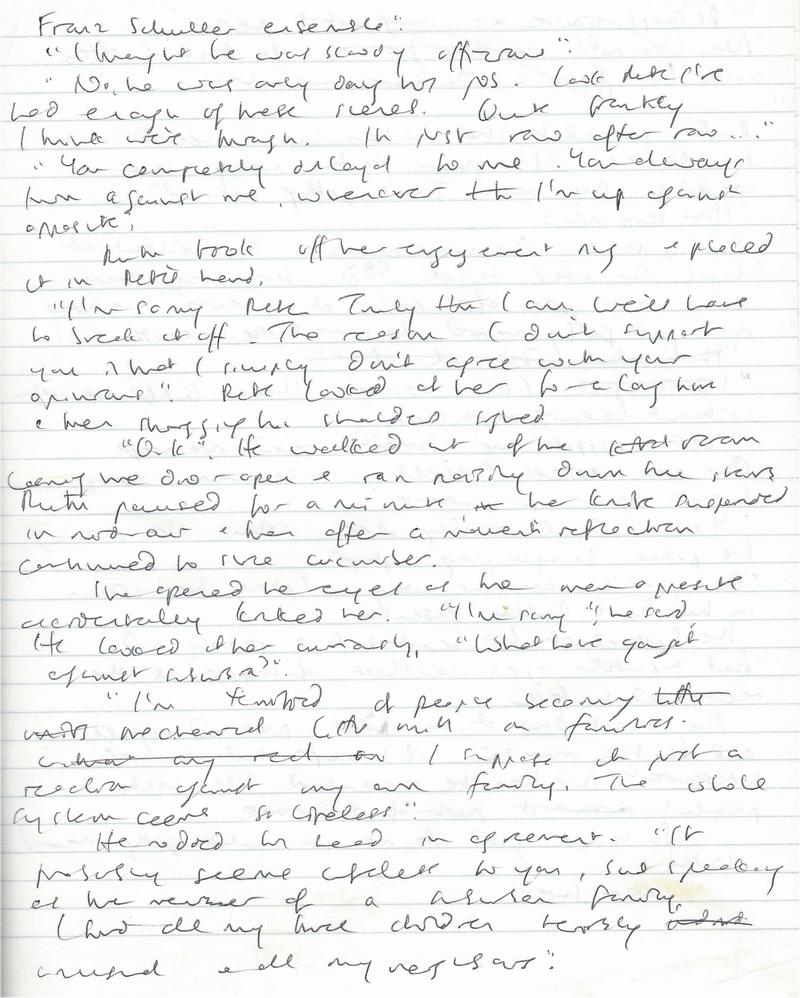 Franz Schuller ensemble".
"I thought he was standy off-raw".
"No, he was only doing his job. Look Pete I've
had enough of these scenes. Quite frankly
I think we're through. It's just row after row ..."
"You completely disloyal to me. You always
turn against me, whenever I'm up against
opposite"
Ruth took off her engagement ring & placed
it in Pete's hand,
"I'm sorry Pete. Truly I am. We'll have
to break it off. The reason I don't support
you is that I simply don't agree with your
opinions". Pete looked at her for a long time
& then shrugging his shoulders sighed
"O.k". He walked out of the room
leaving the door open & ran noisily down the stairs
Ruth paused for a minute her knife suspended
in mid-air & then after a moment's reflection
continued to slice cucumber.
She opened her eyes as the man opposite
accidentally kicked her. "I'm sorry", he said,
He looked at her curiously, "What have you got
against suburbia?".
"I'm terrified of people becoming
mechanical little in families.
I suppose it's just a
reaction against my own family. The whole
system seems so lifeless".
He nodded his head in agreement. "It
probably seems lifeless to you, but speaking
as the member of a suburban family,
I find all my three children terribly
unusual & all my neighbours".